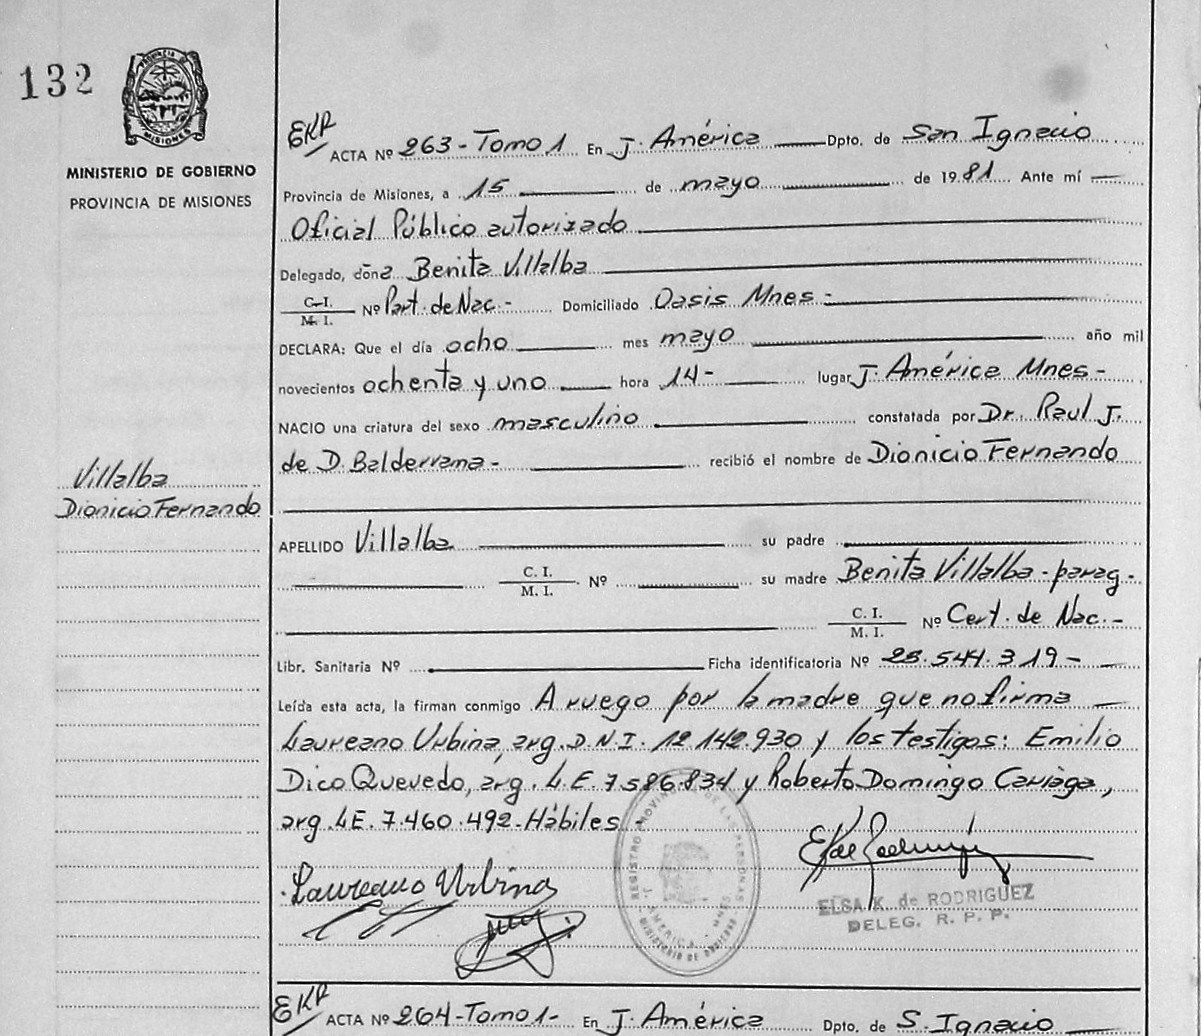 132
PROVINCIA DE
MISIONES
MINISTERIO DE GOBIERNO
PROVINCIA DE MISIONES
Villalba
Dionicio Fernando
EKR
ACTA Nº 263-Tomo 1 En J. América Dpto. de San Ignacio
Provincia de Misiones, a 15 de mayo de 1981. Ante mí
Oficial Público autorizado
Delegado, dóna Benita Villalba
C. I.
M. I.
Nº Part. de Nac.- Domiciliado Oasis Mnes-
DECLARA: Que el día ocho mes mayo año mil
novecientos ochenta y uno hora 14- lugar J. América Mnes-
NACIO una criatura del sexo masculino constatada por Dr. Raul J.
de D. Balderrama- recibió el nombre de Dionicio Fernando
APELLIDO Villalba su padre
C. I.
M. I.
Nº su madre Benita Villalba-parag-
C. I.
M. I.
Nº Cert. de Nac.-
Libr. Sanitaria Nº Ficha identificatoria Nº 28.544.319-
Leída esta acta, la firman conmigo A ruego por la madre que no firma
Laureano Urbina, arg. D.N.I. 12.142.930 y los testigos: Emilio
Dico Quevedo, arg. L.E. 7.586.834 y Roberto Domingo Cariaga,
arg. LE. 7.460.492-Hábiles-
Laureano Urbina
REGISTRO PROVINCIAL DE LAS PERSONAS
J. AMERICA - MNES
MINISTERIO DE GOBIERNO
ELSA K. de RODRIGUEZ
DELEG. R. P. P.
EKR
ACTA Nº 264-Tomo 1- En J. América Dpto. de S. Ignacio